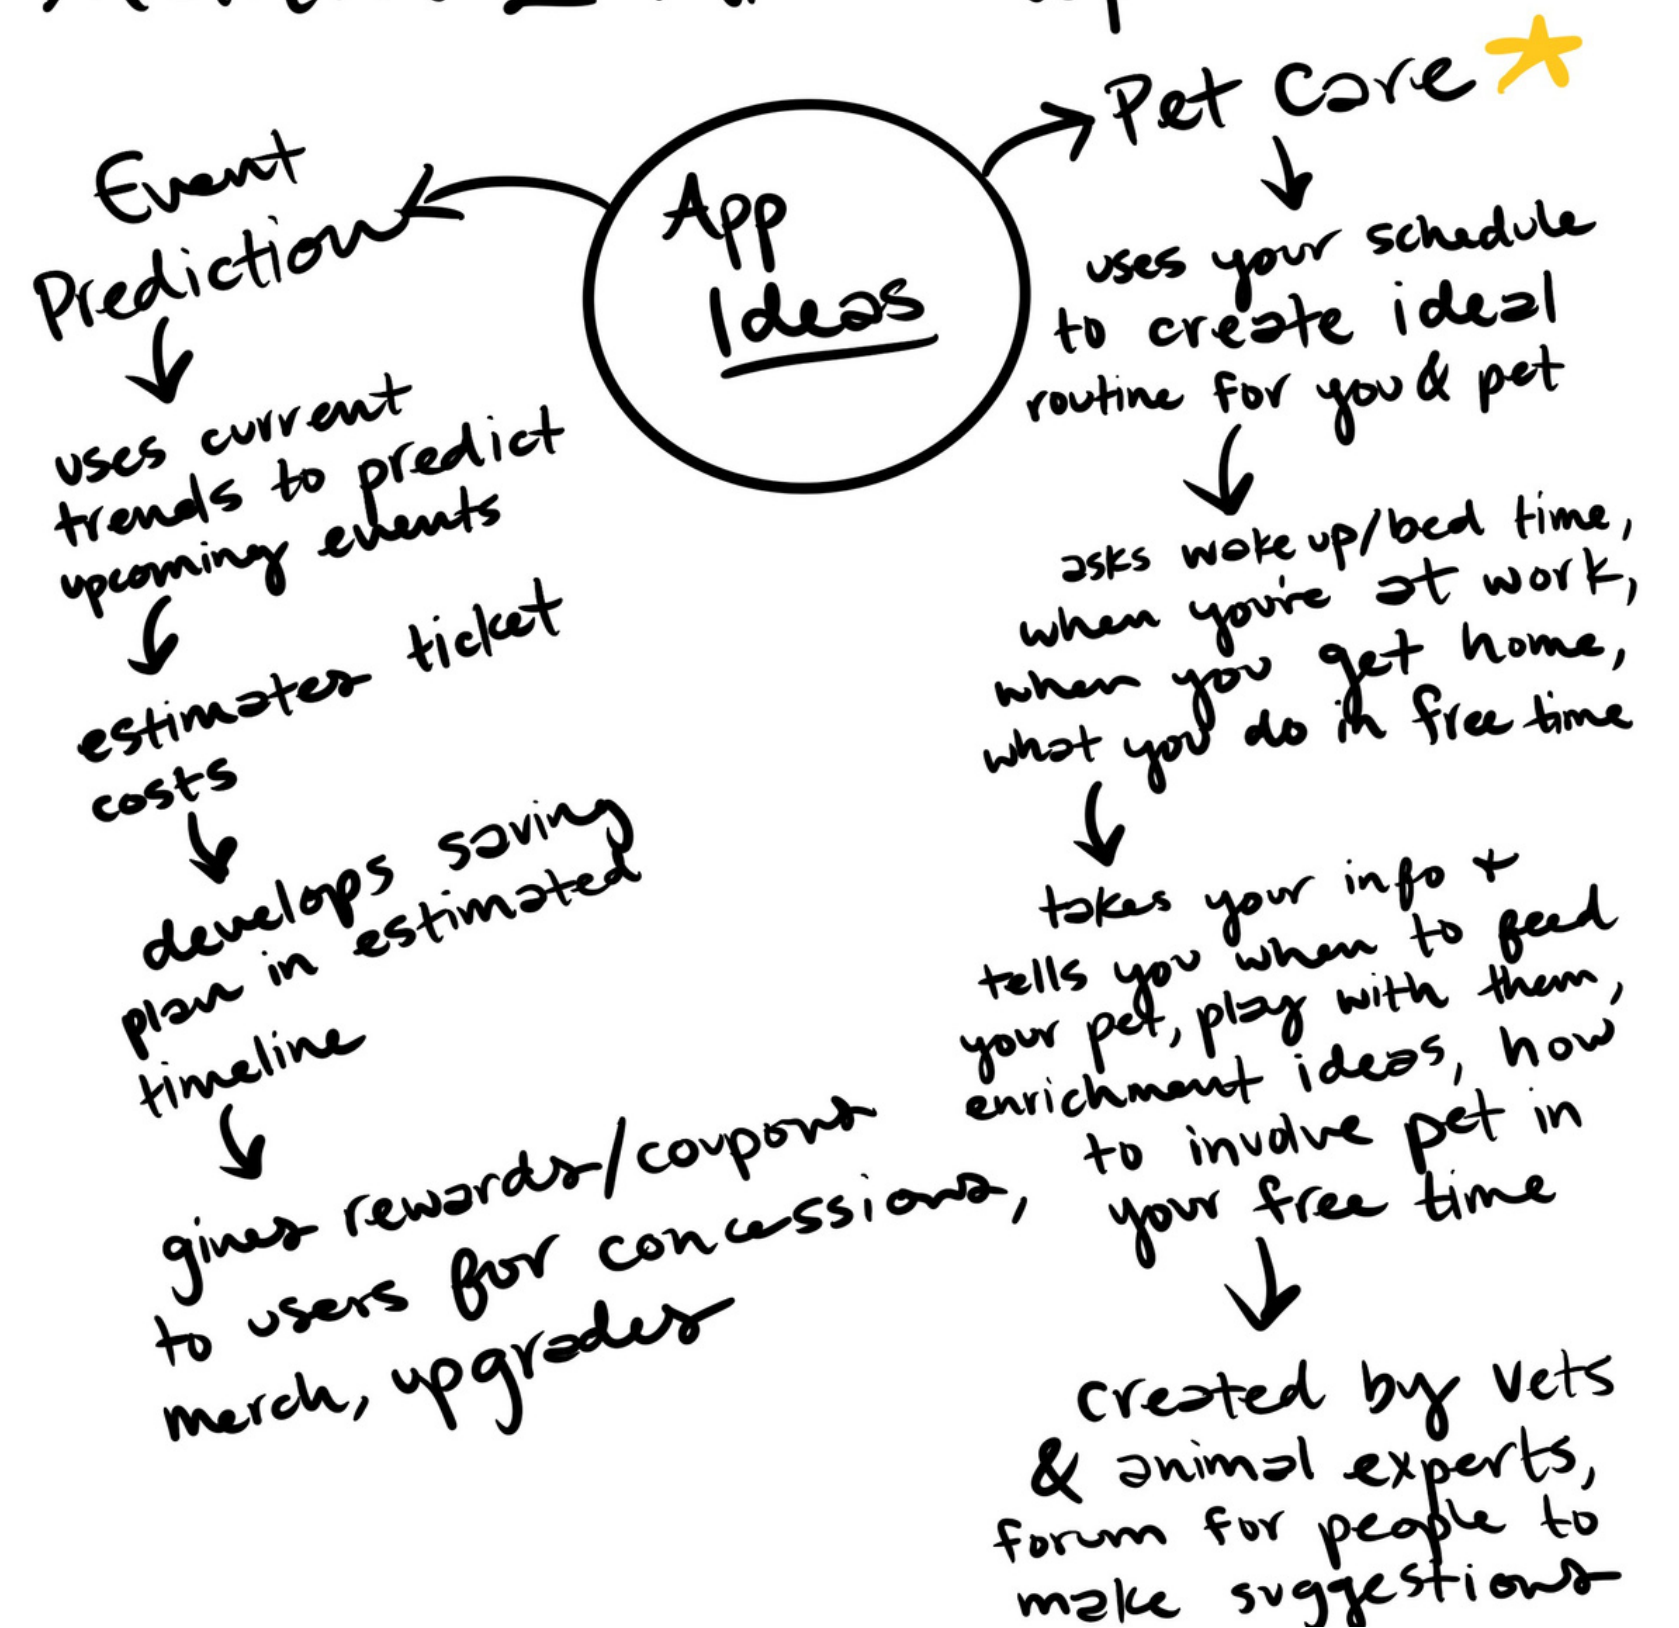 App
Ideas
Event
Prediction
uses current
trends to predict
upcoming events
estimates ticket
costs
develops saving
plan in estimated
timeline
gives rewards/coupons
to users for concessions,
merch, upgrades
Pet Care
uses your schedule
to create ideal
routine for you & pet
asks wake up/bed time,
when you're at work,
when you get home,
what you do in free time
takes your info +
tells you when to feed
your pet, play with them,
enrichment ideas, how
to involve pet in
your free time
created by vets
& animal experts,
forum for people to
make suggestions